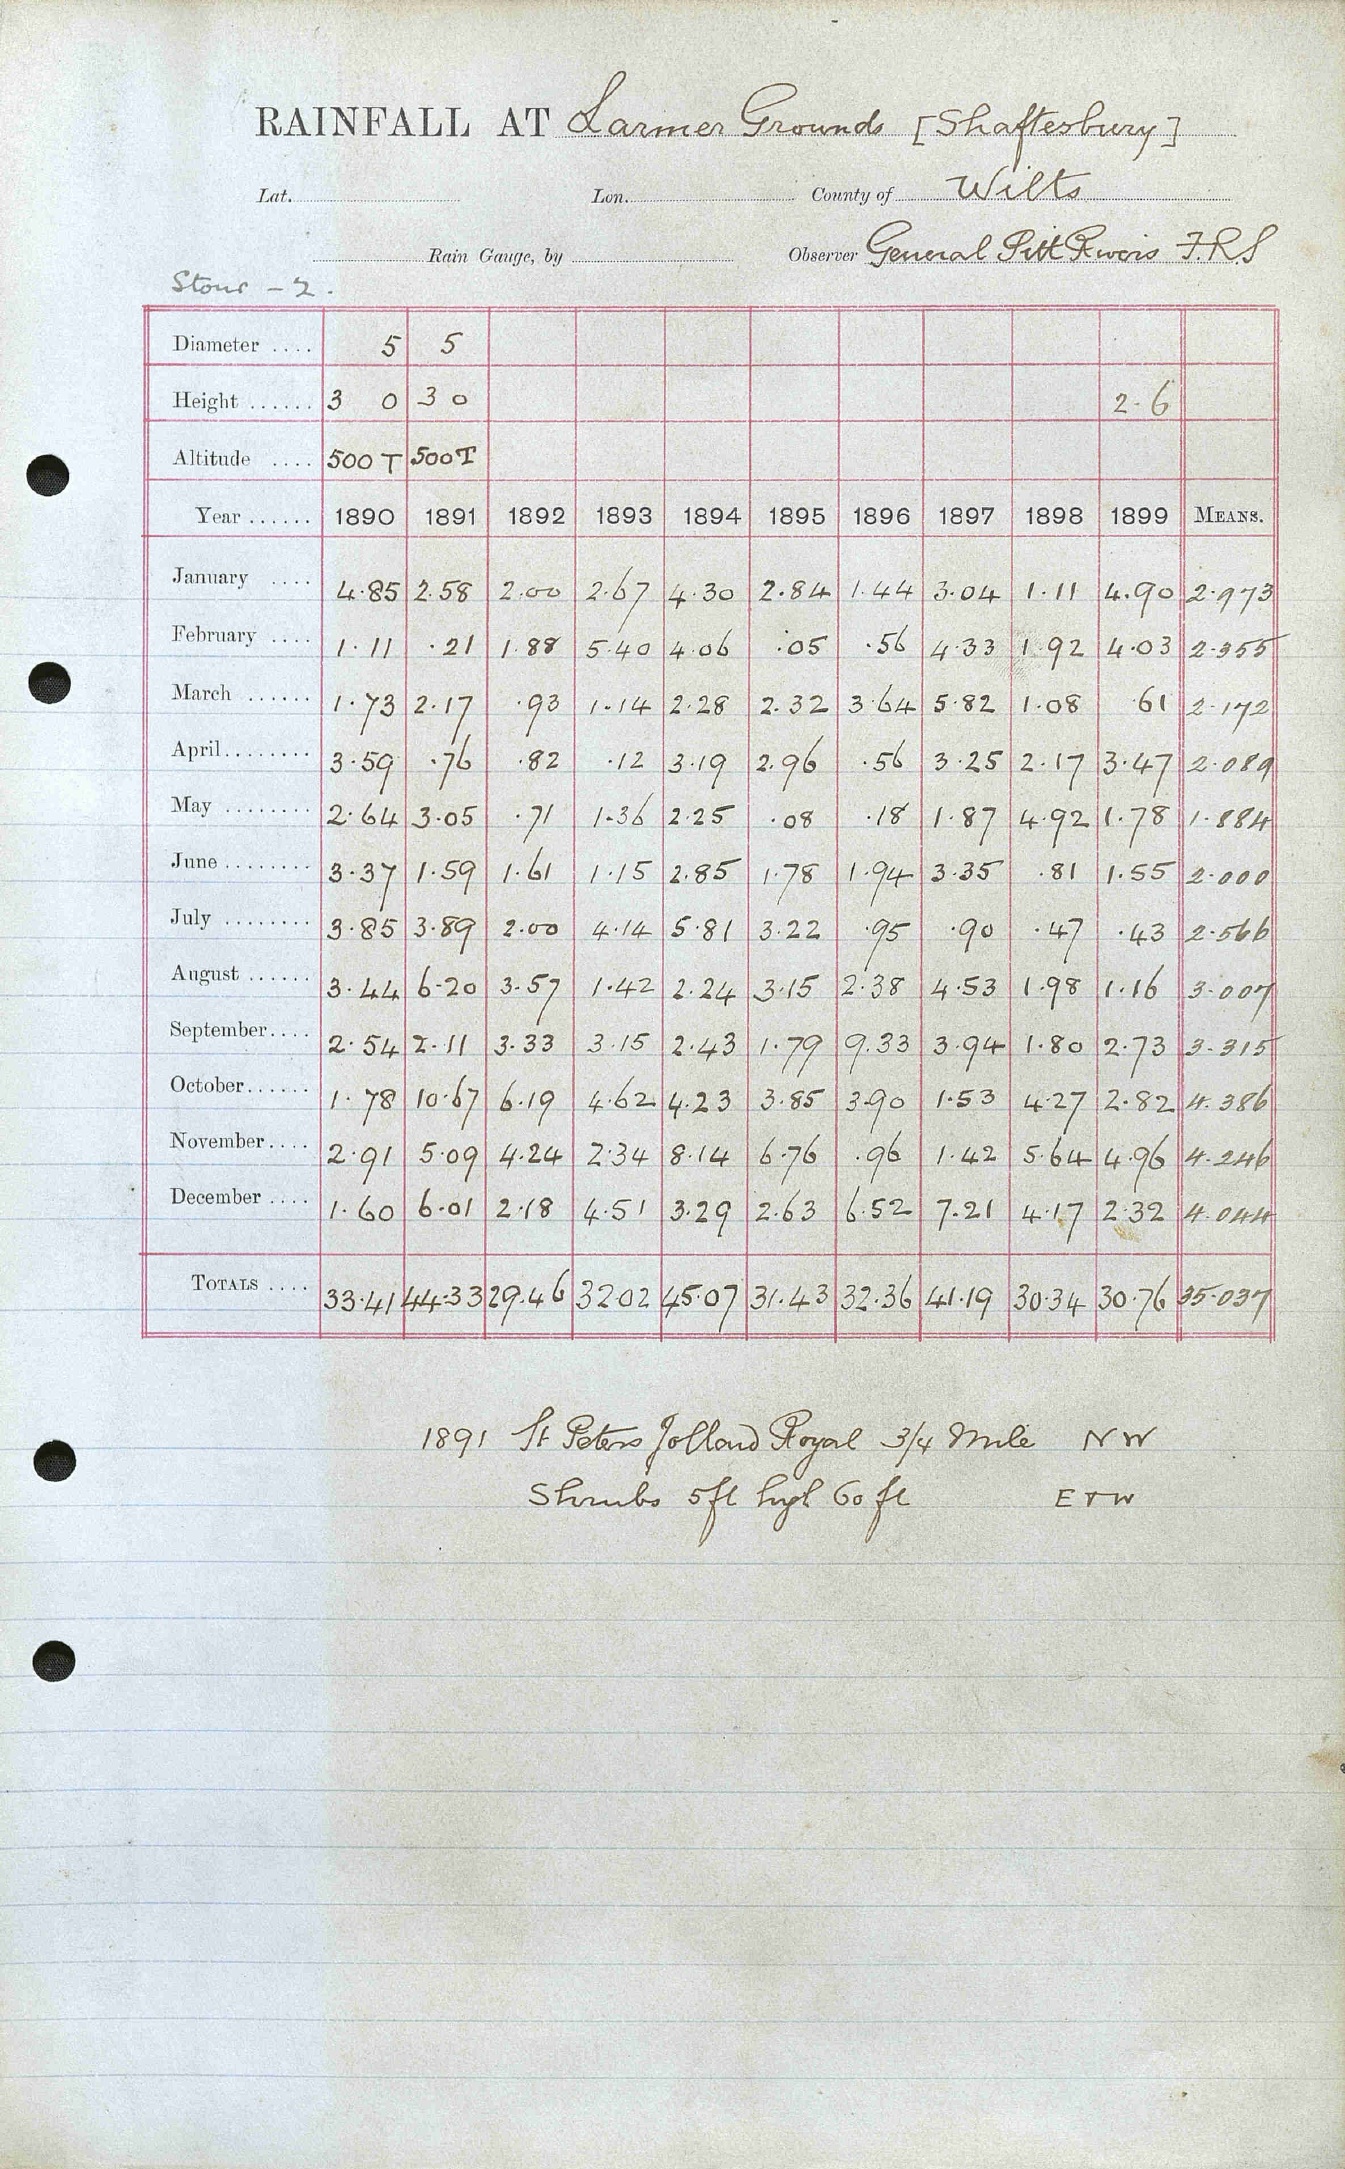 RAINFALL AT Larmer Grounds [Shaftesbury]
Lat. Lon. County of Wilts
Rain Gauge, by Observer General Pitt Rivers F.R.S
Stour - 2.
Diameter .... 5 5
Height ...... 3 0 3 0 2.6
Altitude .... 500 T 500 T
Year ...... 1890 1891 1892 1893 1894 1895 1896 1897 1898 1899 MEANS.
January .... 4.85 2.58 2.00 2.67 4.30 2.84 1.44 3.04 1.11 4.90 2.973
February .... 1.11 .21 1.88 5.40 4.06 .05 .56 4.33 1.92 4.03 2.355
March ...... 1.73 2.17 .93 1.14 2.28 2.32 3.64 5.82 1.08 .61 2.172
April ........ 3.59 .76 .82 .12 3.19 2.96 .56 3.25 2.17 3.47 2.089
May ........ 2.64 3.05 .71 1.36 2.25 .08 .18 1.87 4.92 1.78 1.884
June ........ 3.37 1.59 1.61 1.15 2.85 1.78 1.94 3.35 .81 1.55 2.000
July ........ 3.85 3.89 2.00 4.14 5.81 3.22 .95 .90 .47 .43 2.566
August ...... 3.44 6.20 3.57 1.42 2.24 3.15 2.38 4.53 1.98 1.16 3.007
September .... 2.54 2.11 3.33 3.15 2.43 1.79 9.33 3.94 1.80 2.73 3.315
October ...... 1.78 10.67 6.19 4.62 4.23 3.85 3.90 1.53 4.27 2.82 4.386
November .... 2.91 5.09 4.24 2.34 8.14 6.76 .96 1.42 5.64 4.96 4.246
December .... 1.60 6.01 2.18 4.51 3.29 2.63 6.52 7.21 4.17 2.32 4.044
TOTALS .... 33.41 44.33 29.46 32.02 45.07 31.43 32.36 41.19 30.34 30.76 35.037
1891 St Peters Tolland Royal 3/4 Mile NW
Shrubs 5ft high 60 ft E + W